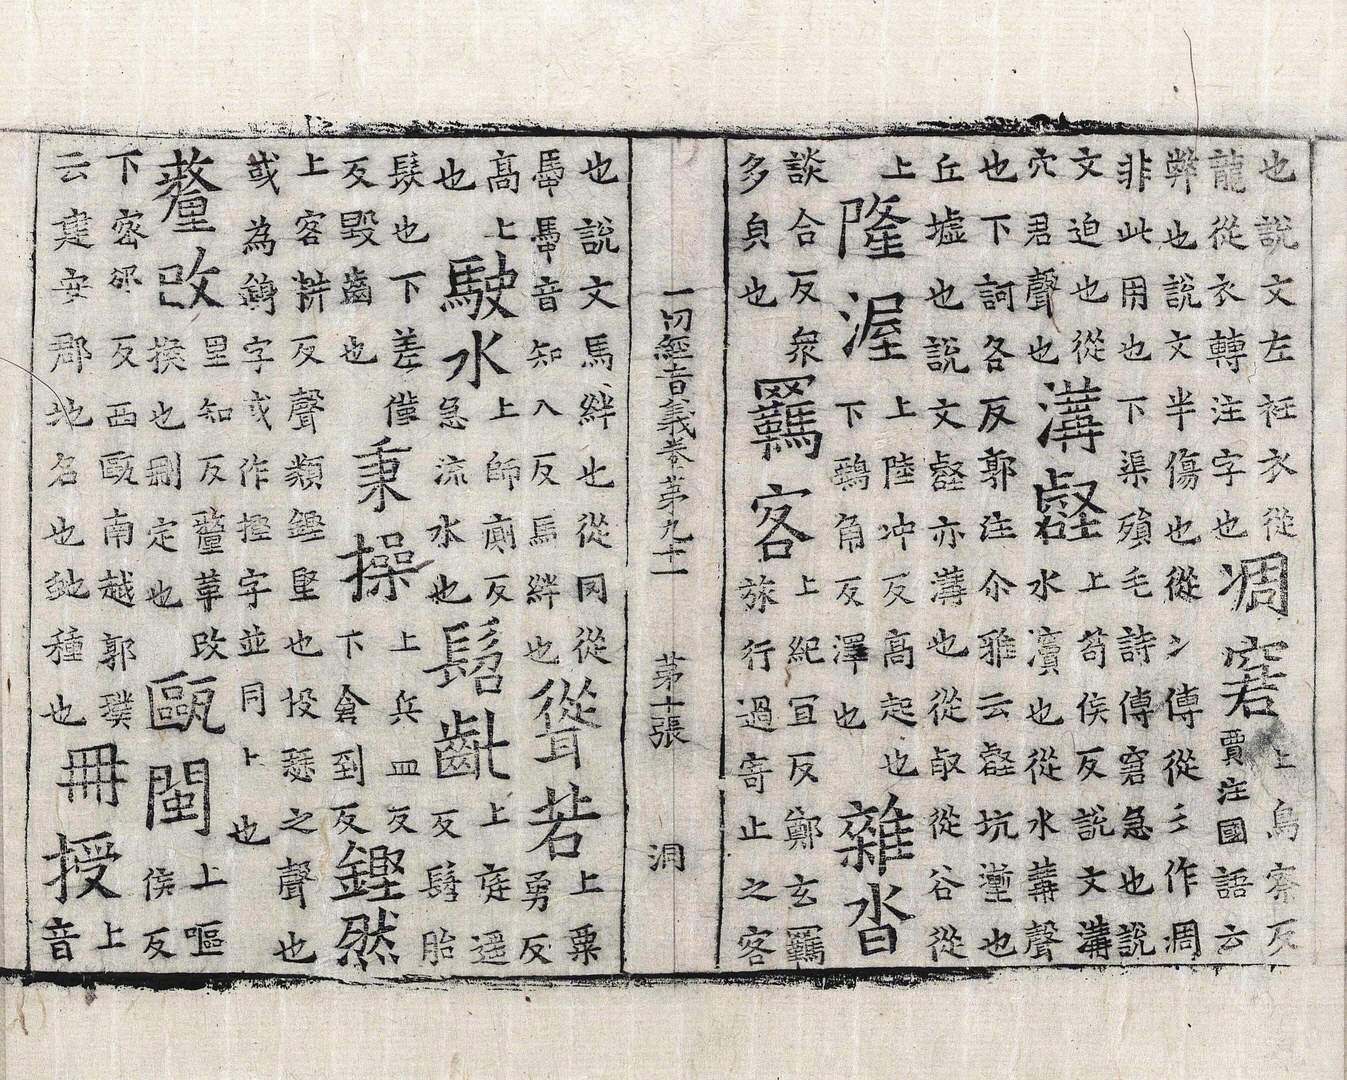 也說文左衽衣從
龍從衣轉注字也
凋窘
上鳥寮反
賈注國語云
弊也說文半傷也從冫傳從彡作凋
非此用也下渠殞毛詩傳窘急也說
文迫也從
穴君聲也
溝壑
上苟侯反說文溝
水瀆也從水冓聲
也下訶各反郭注尒雅云壑坑壍也
丘墟也說文壑亦溝也從㕡從谷從
上
隆渥
上陸冲反高起也
下鵶角反澤也
雜沓
談合反眾
多皃也
羈客
上紀冝反鄭玄羈
旅行過寄止之客
一切經音義卷第九十一 第十張 洞
也說文馬絆也從冂從
馽馽音知入反馬絆也
聳若
上粟
勇反
高上
也
駛水
上師廁反
急流水也
髫齔
上庭遥
反髫胎
髮也下差僅
反毀齒也
秉操
上兵皿反
下倉到反
鏗然
上客耕反聲類鏗堅也投瑟之聲也
或為鏘字或作摼字並同上也
釐改
里知反釐革改
換也刪定也
甌閩
上嘔
侯反
下密邠反西甌南越郭璞
云建安郡地名也虵種也
冊授
上
音